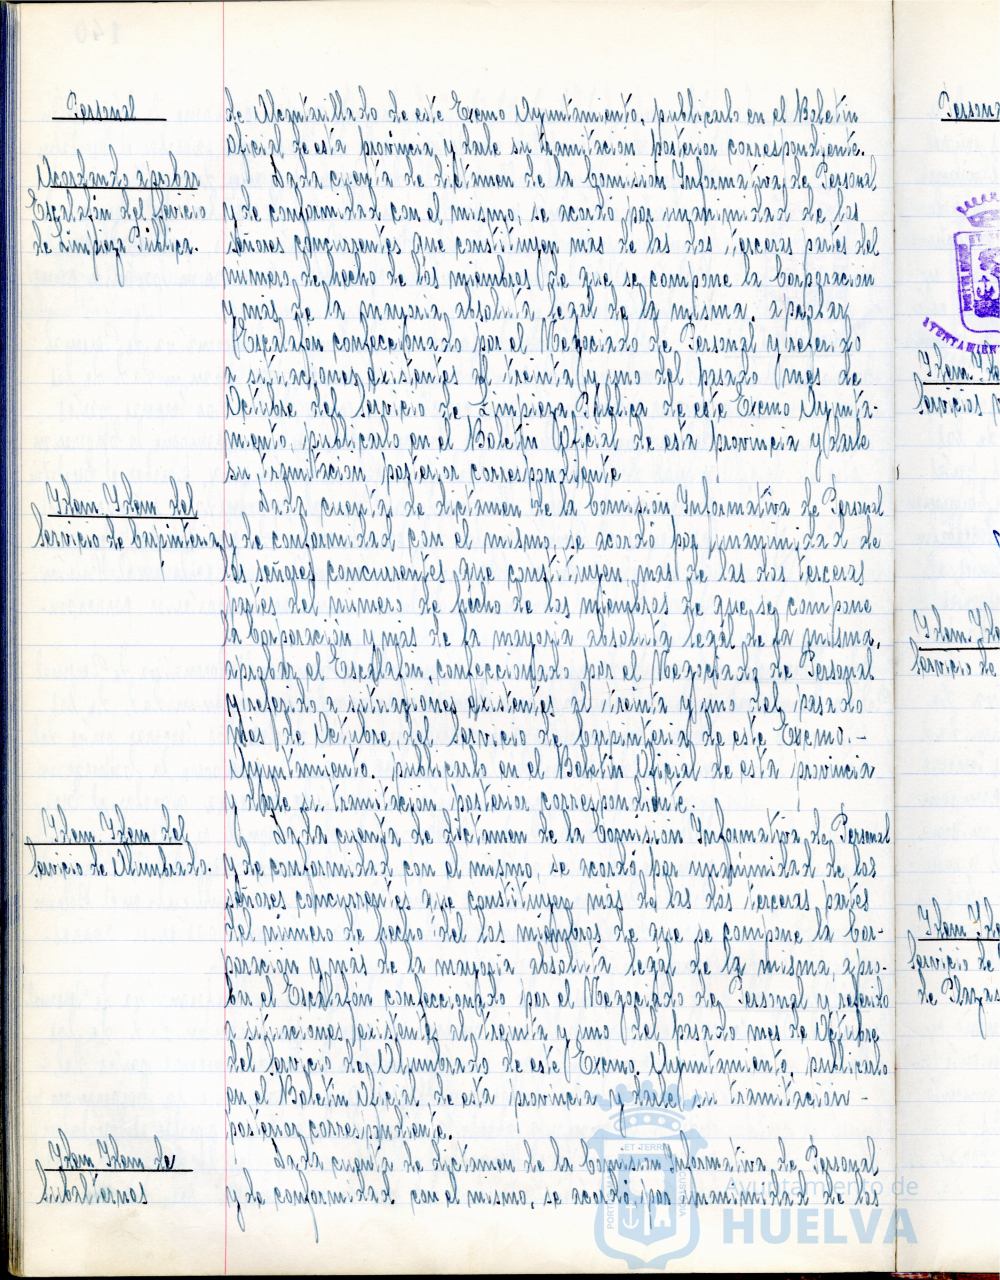 Personal
de Alcantarillado de este Excmo Ayuntamiento, publicarlo en el Boletin
Oficial de esta provincia y darle su tramitacion posterior correspondiente.
Acordando aprobar
Escalafón del Servicio
de Limpieza Pública.
Dada cuenta de dictamen de la Comisión Informativa de Personal
y de conformidad con el mismo, se acordó por unanimidad de los
señores concurrentes que constituyen mas de las dos terceras partes del
numero de hecho de los miembros de que se compone la Corporacion
y más de la mayoria absoluta legal de la misma, aprobar
Escalafon confeccionado por el Negociado de Personal y referido
a situaciones existentes al treinta y uno del pasado mes de
Octubre del Servicio de Limpieza Pública de este Excmo Ayunta-
miento, publicarlo en el Boletin Oficial de esta provincia y darle
su tramitacion posterior correspondiente
Idem. Idem del
Servicio de Carpinteria,
Dada cuenta de dictamen de la Comisión Informativa de Personal
y de conformidad con el mismo, se acordó por unanimidad de
los señores concurrentes que constituyen, mas de las dos terceras
partes del numero de hecho de los miembros de que se compone
la Corporación y más de la mayoria absoluta legal de la misma,
aprobar el Escalafón, confeccionado por el Negociado de Personal
y referido a situaciones existentes al treinta y uno del pasado
mes de Octubre, del Servicio de Carpinteria de este Excmo.-
Ayuntamiento, publicarlo en el Boletin Oficial de esta provincia
y darle su tramitación posterior correspondiente.
Idem. Idem del
Servicio de Alumbrado.
Dada cuenta de dictamen de la Comision Informativa de Personal
y de conformidad con el mismo, se acordó por unanimidad de los
señores concurrentes que constituyen más de las dos terceras partes
del número de hecho del los miembros de que se compone la Cor-
poracion y más de la mayoria absoluta legal de la misma, apro-
bar el Escalafón confeccionado por el Negociado de Personal y referido
a situaciones existentes al treinta y uno del pasado mes de Octubre
del Servicio de Alumbrado de este Excmo. Ayuntamiento, publicarlo
en el Boletin Oficial de esta provincia y darle su tramitación -
posterior correspondiente.
Idem Idem de
Subalternos
Dada cuenta de dictamen de la Comision Informativa de Personal
y de conformidad con el mismo, se acordó por unanimidad de los
Ayuntamiento de
HUELVA
Servicio de
de Plazas